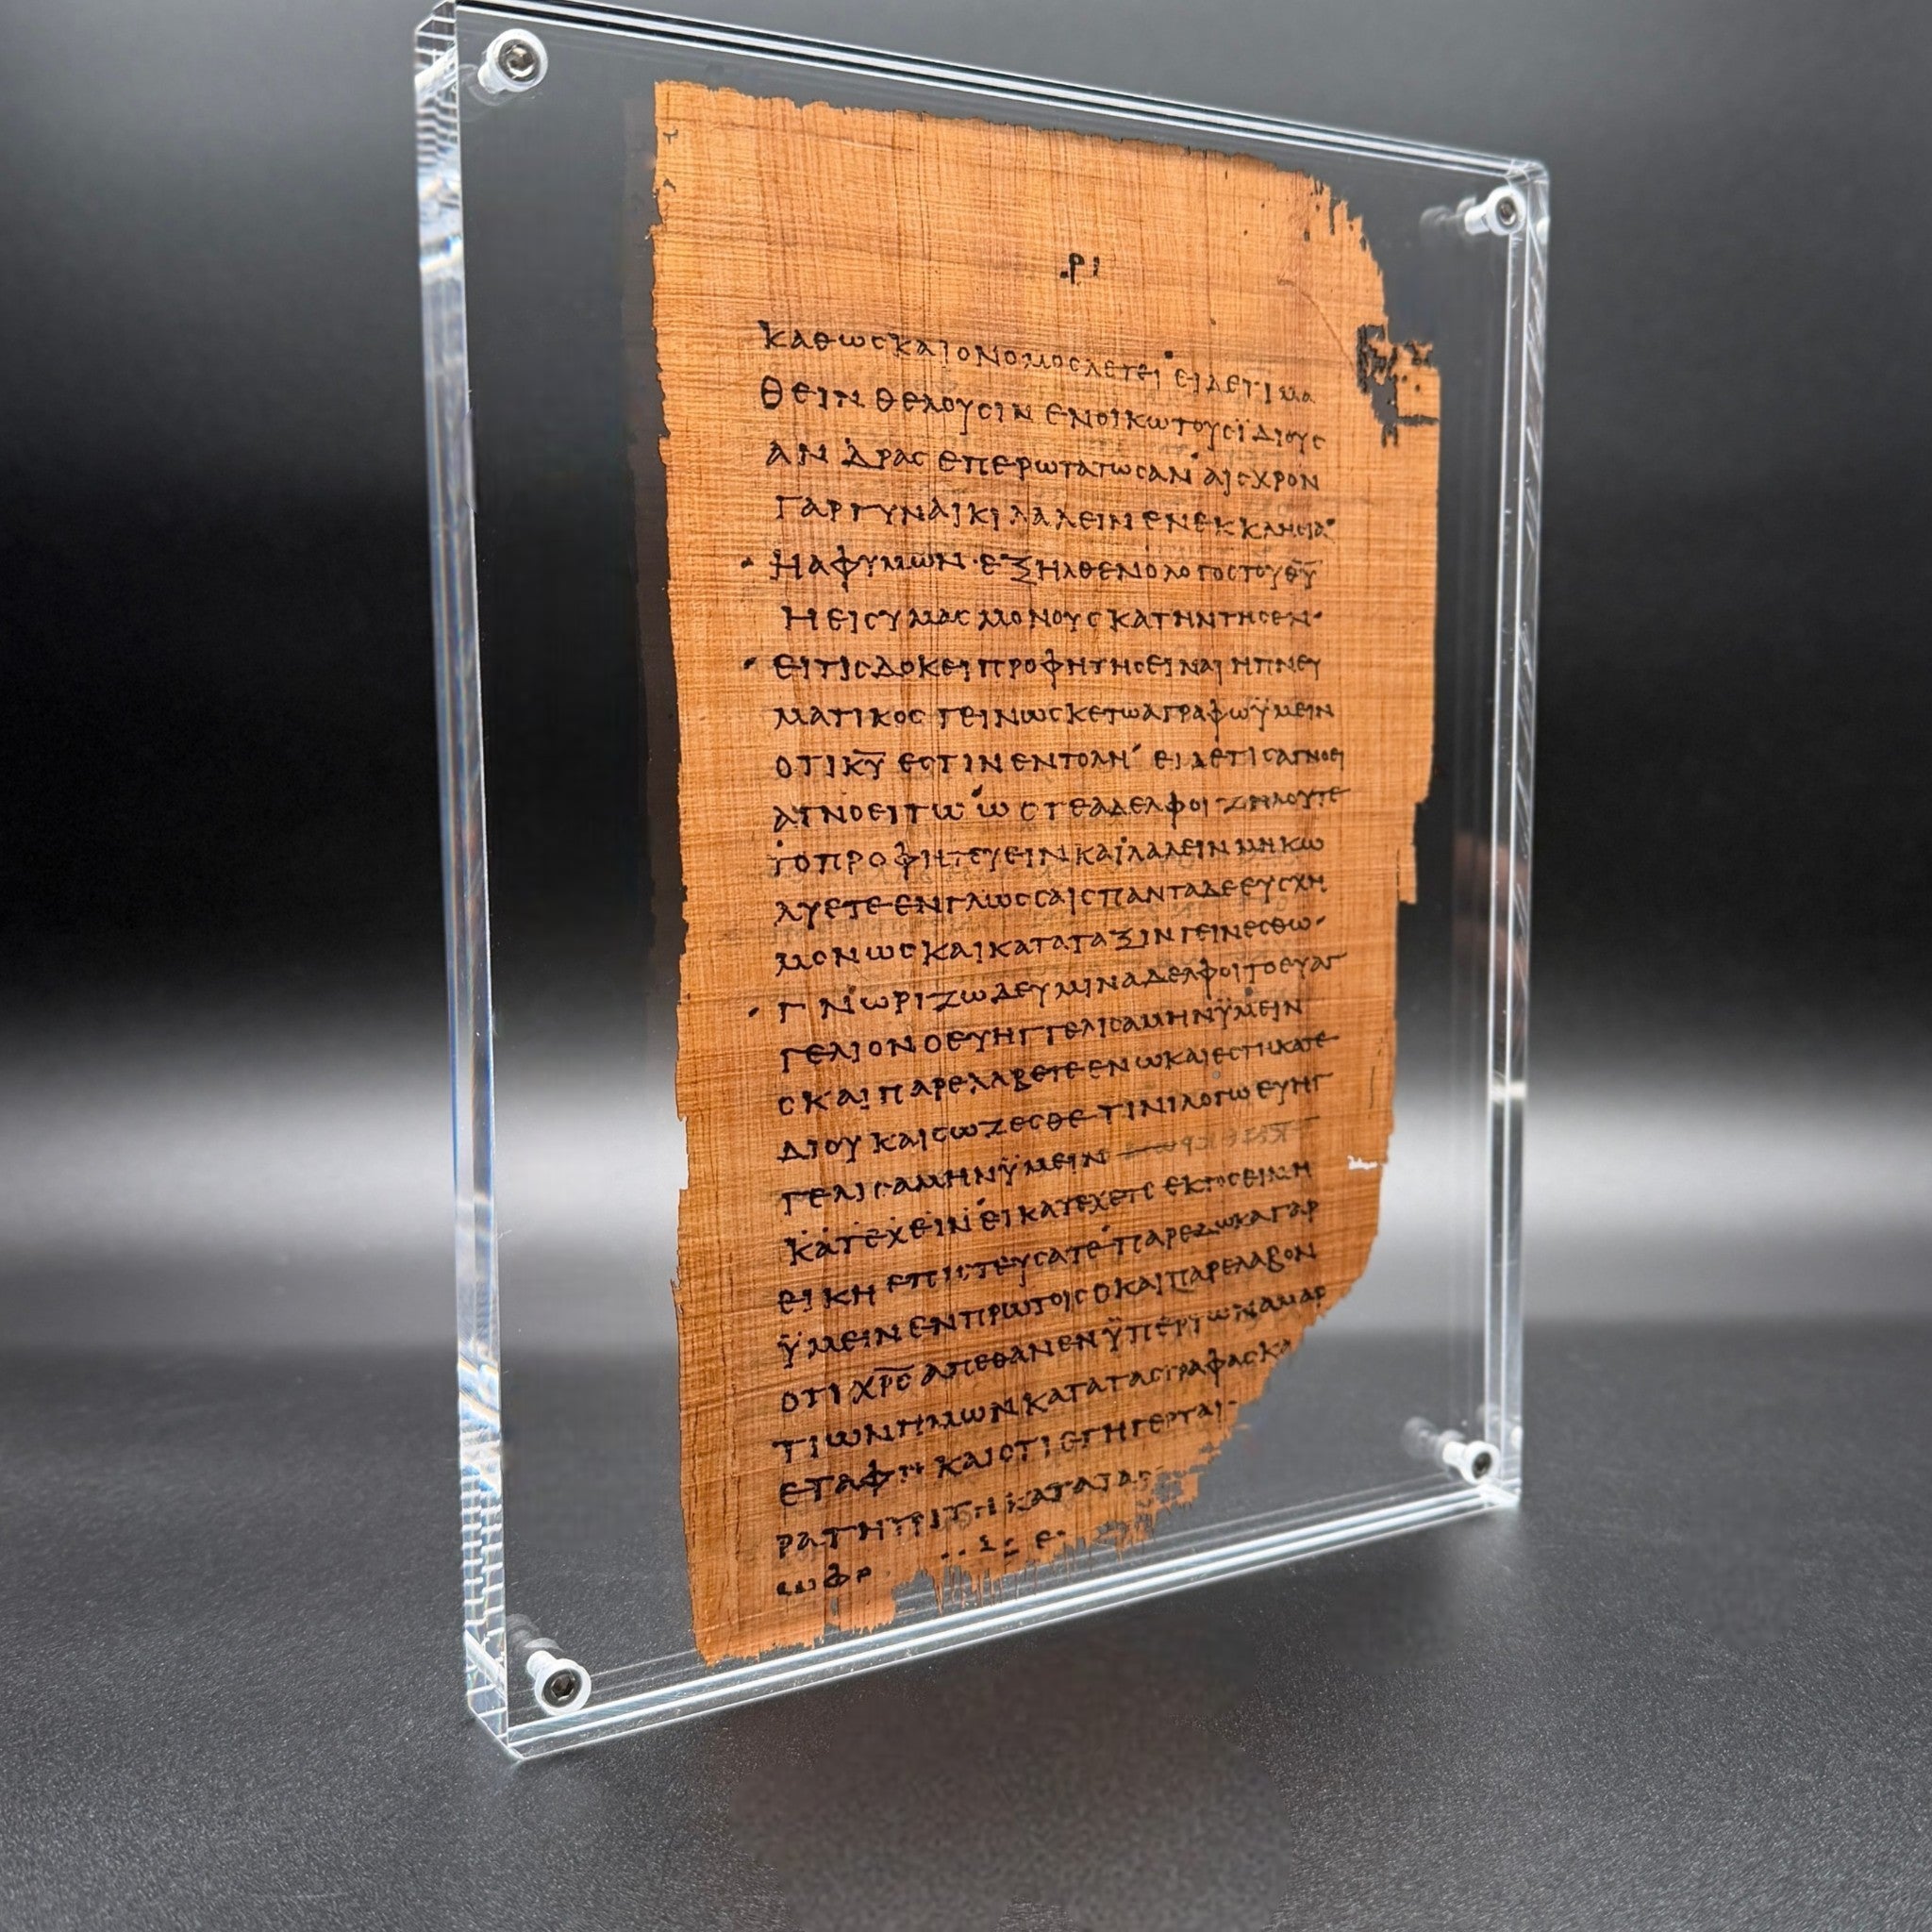 ΡΙ
ΚΑΘΩϹΚΑΙΟΝΟΜΟϹΛΕΓΕΙ· ΕΙΔΕΤΙΜΑ
ΘΕΙΝΘΕΛΟΥϹΙΝΕΝΟΙΚΩΤΟΥϹΪΔΙΟΥϹ
ΑΝΔΡΑϹΕΠΕΡΩΤΑΤΩϹΑΝ ΑΙϹΧΡΟΝ
ΓΑΡΓΥΝΑΙΚΙΛΑΛΕΙΝΕΝΕΚΚΛΗϹΙΑ·
ΗΑΦΥΜΩΝ·ΕΞΗΛΘΕΝΟΛΟΓΟϹΤΟΥΘ̅Υ̅
ΗΕΙϹΥΜΑϹΜΟΝΟΥϹΚΑΤΗΝΤΗϹΕΝ·
ΕΙΤΙϹΔΟΚΕΙΠΡΟΦΗΤΗϹΕΙΝΑΙΗΠΝΕΥ
ΜΑΤΙΚΟϹΓΕΙΝΩϹΚΕΤΩΑΓΡΑΦΩΫΜΕΙΝ
ΟΤΙΚ̅Υ̅ΕϹΤΙΝΕΝΤΟΛΗ· ΕΙΔΕΤΙϹΑΓΝΟΕΙ
ΑΓΝΟΕΙΤΩ·ΩϹΤΕΑΔΕΛΦΟΙΖΗΛΟΥΤΕ
ΤΟΠΡΟΦΗΤΕΥΕΙΝΚΑΙΛΑΛΕΙΝΜΗΚΩ
ΛΥΕΤΕΕΝΓΛΩϹϹΑΙϹΠΑΝΤΑΔΕΕΥϹΧΗ
ΜΟΝΩϹΚΑΙΚΑΤΑΤΑΞΙΝΓΕΙΝΕϹΘΩ·
ΓΝΩΡΙΖΩΔΕΥΜΙΝΑΔΕΛΦΟΙΤΟΕΥΑΓ
ΓΕΛΙΟΝΟΕΥΗΓΓΕΛΙϹΑΜΗΝΫΜΕΙΝ
ΟΚΑΙΠΑΡΕΛΑΒΕΤΕΕΝΩΚΑΙΕϹΤΗΚΑΤΕ
ΔΙΟΥΚΑΙϹΩΖΕϹΘΕΤΙΝΙΛΟΓΩΕΥΗΓ
ΓΕΛΙϹΑΜΗΝΫΜΕΙΝ
ΚΑΤΕΧΕΙΝΕΙΚΑΤΕΧΕΤΕΕΚΤΟϹΕΙΜΗ
ΕΙΚΗΕΠΙϹΤΕΥϹΑΤΕ·ΠΑΡΕΔΩΚΑΓΑΡ
ΫΜΕΙΝΕΝΠΡΩΤΟΙϹΟΚΑΙΠΑΡΕΛΑΒΟΝ
ΟΤΙΧ̅Ρ̅Ϲ̅ΑΠΕΘΑΝΕΝΫΠΕΡΤΩΝΑΜΑΡ
ΤΙΩΝΗΜΩΝΚΑΤΑΤΑϹΓΡΑΦΑϹΚΑ
ΕΤΑΦΗΚΑΙΟΤΙΕΓΗΓΕΡΤΑΙ
ΡΑΤΗΤΡΙΤΗΚΑΤΑΤΑϹ
ΩΦΘ